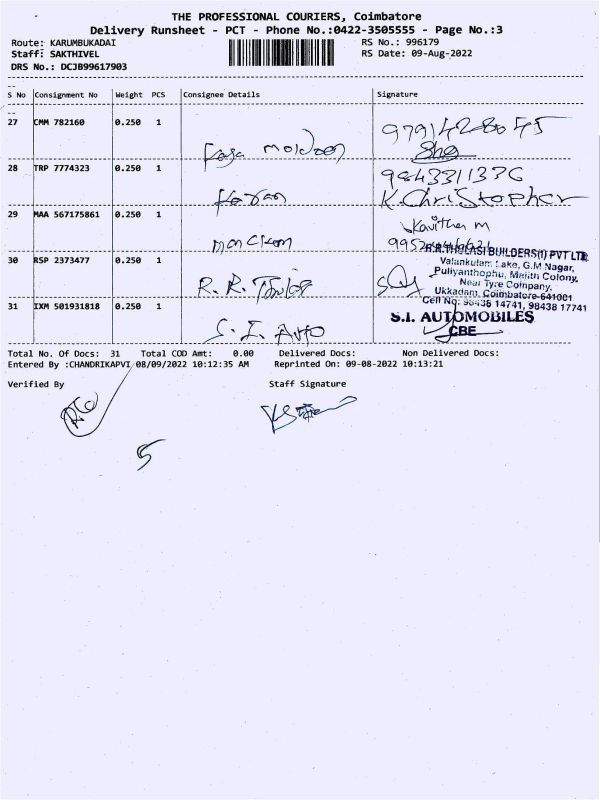 THE PROFESSIONAL COURIERS, Coimbatore
Delivery Runsheet - PCT - Phone No.:0422-3505555 - Page No.:3
Route: KARUMBUKADAI RS No.: 996179
Staff: SAKTHIVEL RS Date: 09-Aug-2022
DRS No.: DCJB99617903
S No Consignment No Weight PCS Consignee Details Signature
27 CMM 782160 0.250 1
9791428045
28 TRP 7774323 0.250 1
9843311376
K.Christopher
29 MAA 567175861 0.250 1
Kavitha M
30 RSP 2373477 0.250 1
R.R.THULASI BUILDERS(I) PVT LTD
Valankulam Lake, G.M Nagar,
Puliyanthophu, Majith Colony,
Near Tyre Company,
Ukkadam, Coimbatore-641001
Cell No: 98438 14741, 98438 17741
31 IXM 501931818 0.250 1
S. I. Auto
S.I. AUTOMOBILES
CBE
Total No. Of Docs: 31 Total COD Amt: 0.00 Delivered Docs: Non Delivered Docs:
Entered By :CHANDRIKAPVI/08/09/2022 10:12:35 AM Reprinted On: 09-08-2022 10:13:21
Verified By Staff Signature
5